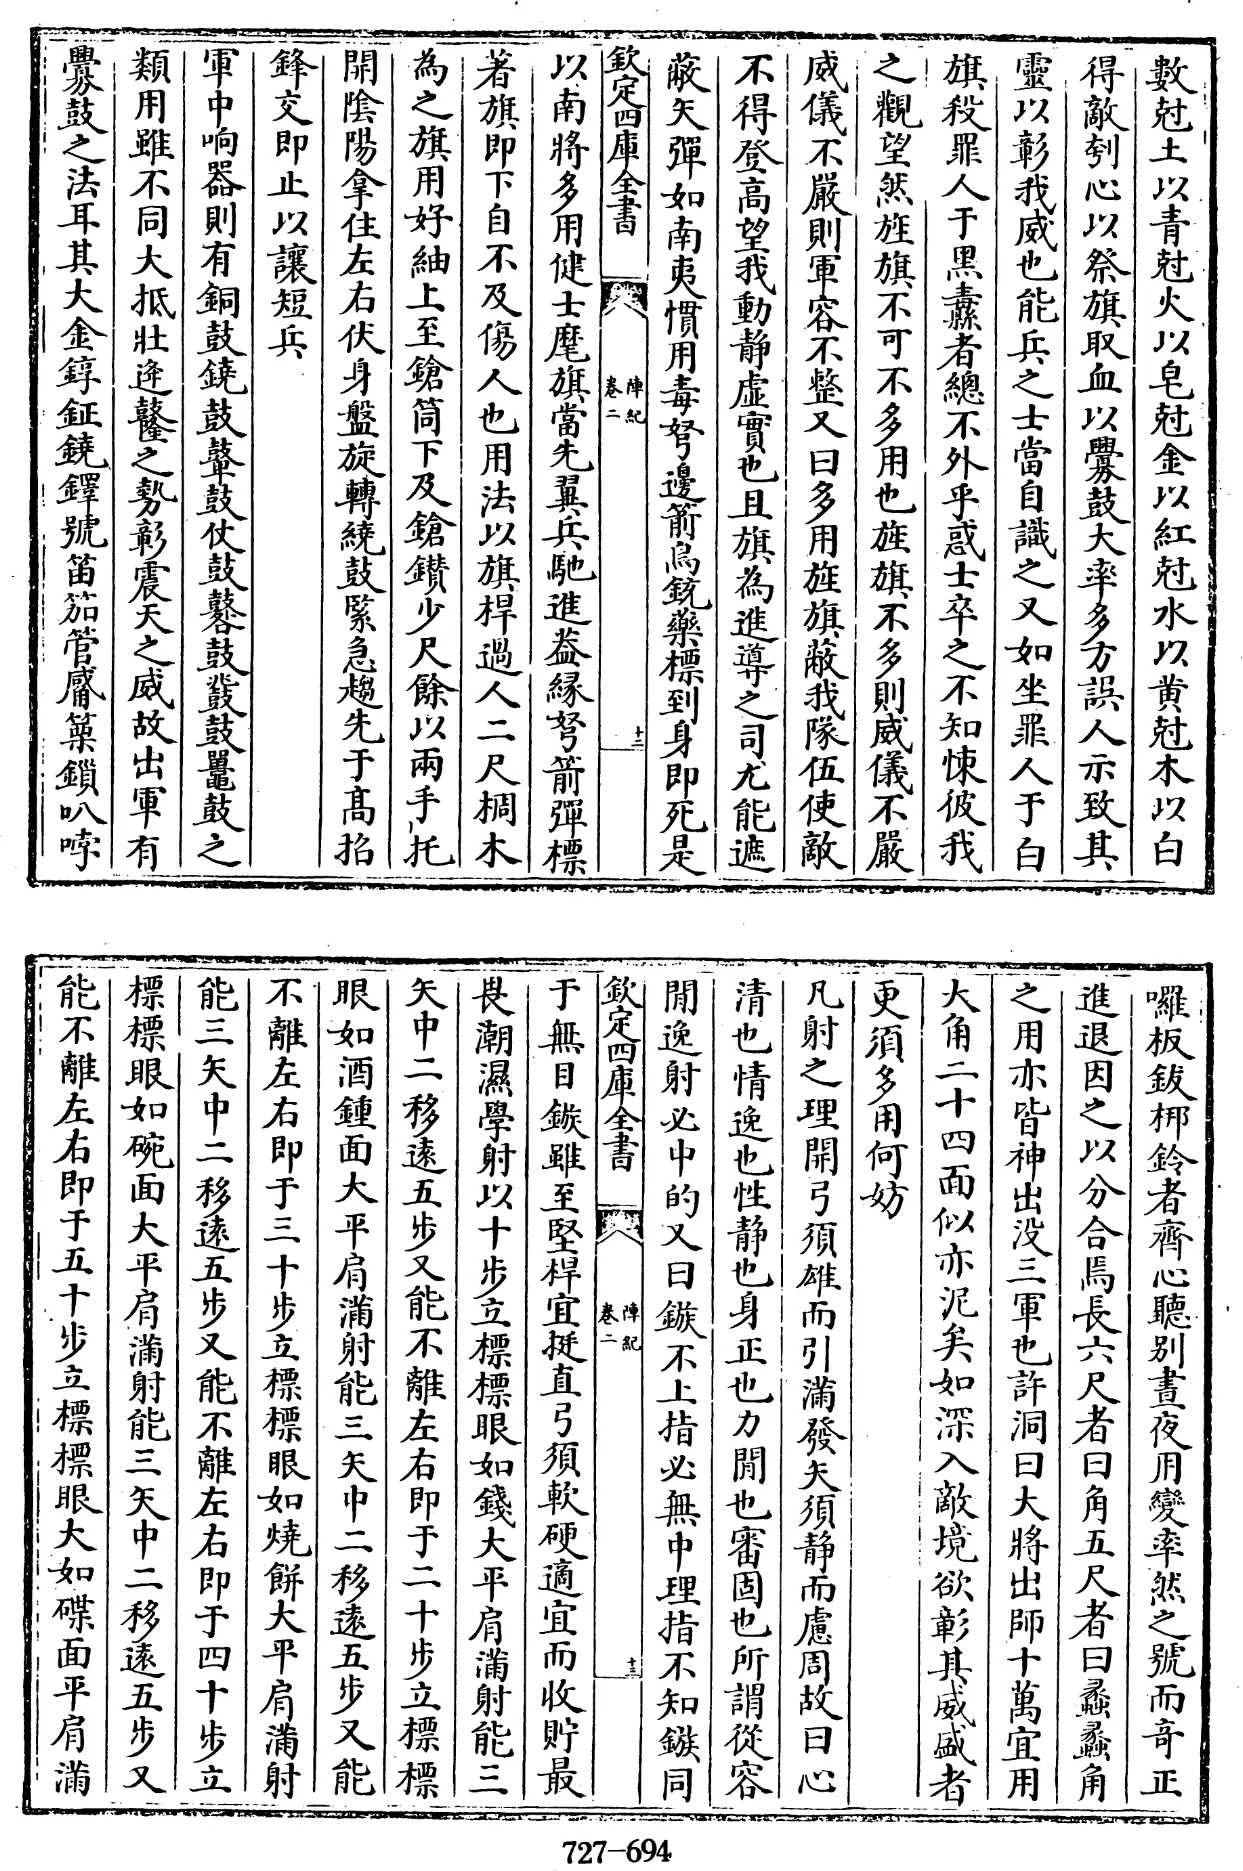 數尅土以青尅火以皂尅金以紅尅水以黄尅木以白
得敵刳心以祭旗取血以釁鼓大率多方誤人示致其
靈以彰我威也能兵之士當自識之又如坐罪人于白
旗殺罪人于黑纛者總不外乎惑士卒之不知悚彼我
之觀望然旌旗不可不多用也旌旗不多則威儀不嚴
威儀不嚴則軍容不整又曰多用旌旗蔽我隊伍使敵
不得登高望我動靜虚實也且旗為進導之司尤能遮
蔽矢彈如南夷慣用毒弩邊箭鳥銃藥標到身即死是
欽定四庫全書
陣紀
卷二
十二
以南將多用健士麾旗當先翼兵馳進葢縁弩箭彈標
著旗即下自不及傷人也用法以旗桿過人二尺椆木
為之旗用好紬上至鎗筒下及鎗鐏少尺餘以兩手托
開陰陽拿住左右伏身盤旋轉繞鼓緊急趨先于高招
鋒交即止以讓短兵
軍中响器則有銅鼓鐃鼓鼙鼓仗鼓鼛鼓鼖鼓鼉鼓之
類用雖不同大抵壯逄鼞之勢彰震天之威故出軍有
釁鼓之法耳其大金錞鉦鐃鐸號笛笳管觱篥鎖叭哱
囉板鈸梆鈴者齊心聽别晝夜用變率然之號而竒正
進退因之以分合焉長六尺者曰角五尺者曰蠡蠡角
之用亦皆神出没三軍也許洞曰大將出師十萬宜用
大角二十四面似亦泥矣如深入敵境欲彰其威盛者
更須多用何妨
凡射之理開弓須雄而引滿發矢須静而慮周故曰心
清也情逸也性静也身正也力閒也審固也所謂從容
閒逸射必中的又曰鏃不上指必無中理指不知鏃同
欽定四庫全書
陣紀
卷二
十三
于無目鏃雖至堅桿宜挺直弓須軟硬適宜而收貯最
畏潮濕學射以十步立標標眼如錢大平肩滿射能三
矢中二移遠五步又能不離左右即于二十步立標標
眼如酒鍾面大平肩滿射能三矢中二移遠五步又能
不離左右即于三十步立標標眼如燒餅大平肩滿射
能三矢中二移遠五步又能不離左右即于四十步立
標標眼如碗面大平肩滿射能三矢中二移遠五步又
能不離左右即于五十步立標標眼大如碟面平肩滿
727-694